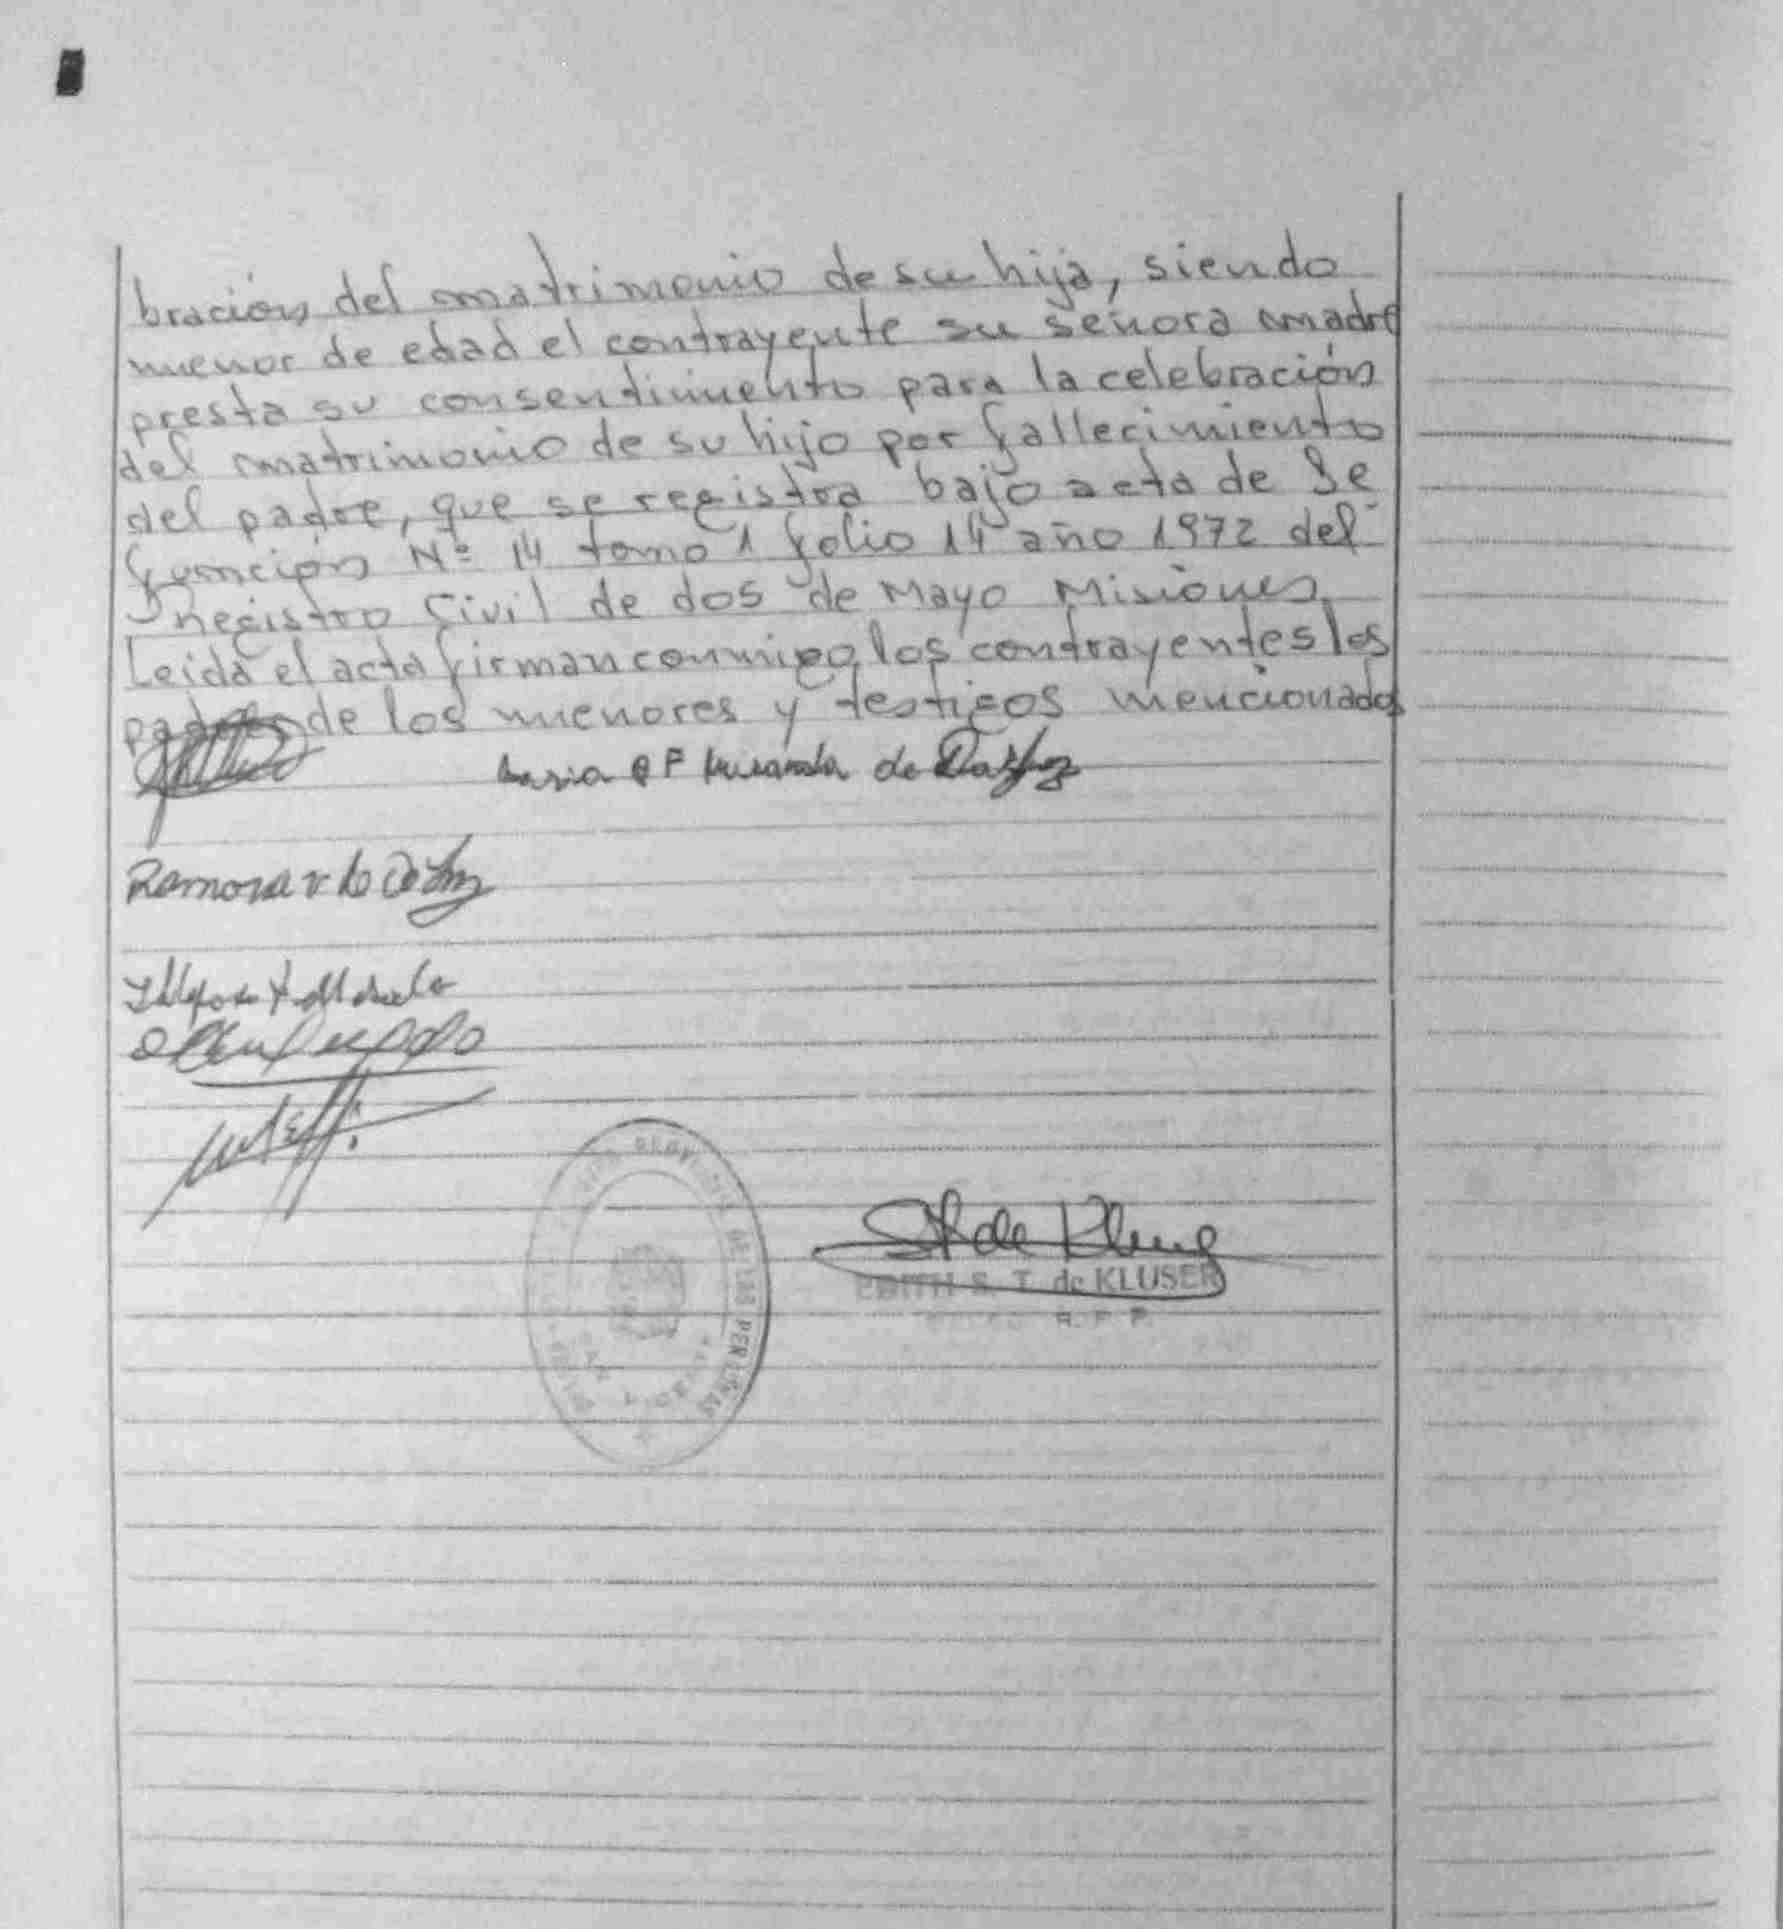 bración del matrimonio de su hija, siendo
menor de edad el contrayente su señora madre
presta su consentimiento para la celebración
del matrimonio de su hijo por fallecimiento
del padre, que se registra bajo acta de De
función Nº 14 tomo 1 folio 14 año 1972 del
registro Civil de dos de Mayo Misiones
Leida el acta firman conmigo los contrayentes los
padres de los menores y testigos mencionados
Maria F Miranda de
Ramona v de
DE LAS PERSONAS
EDITH S. T. de KLUSER
R. P. P.